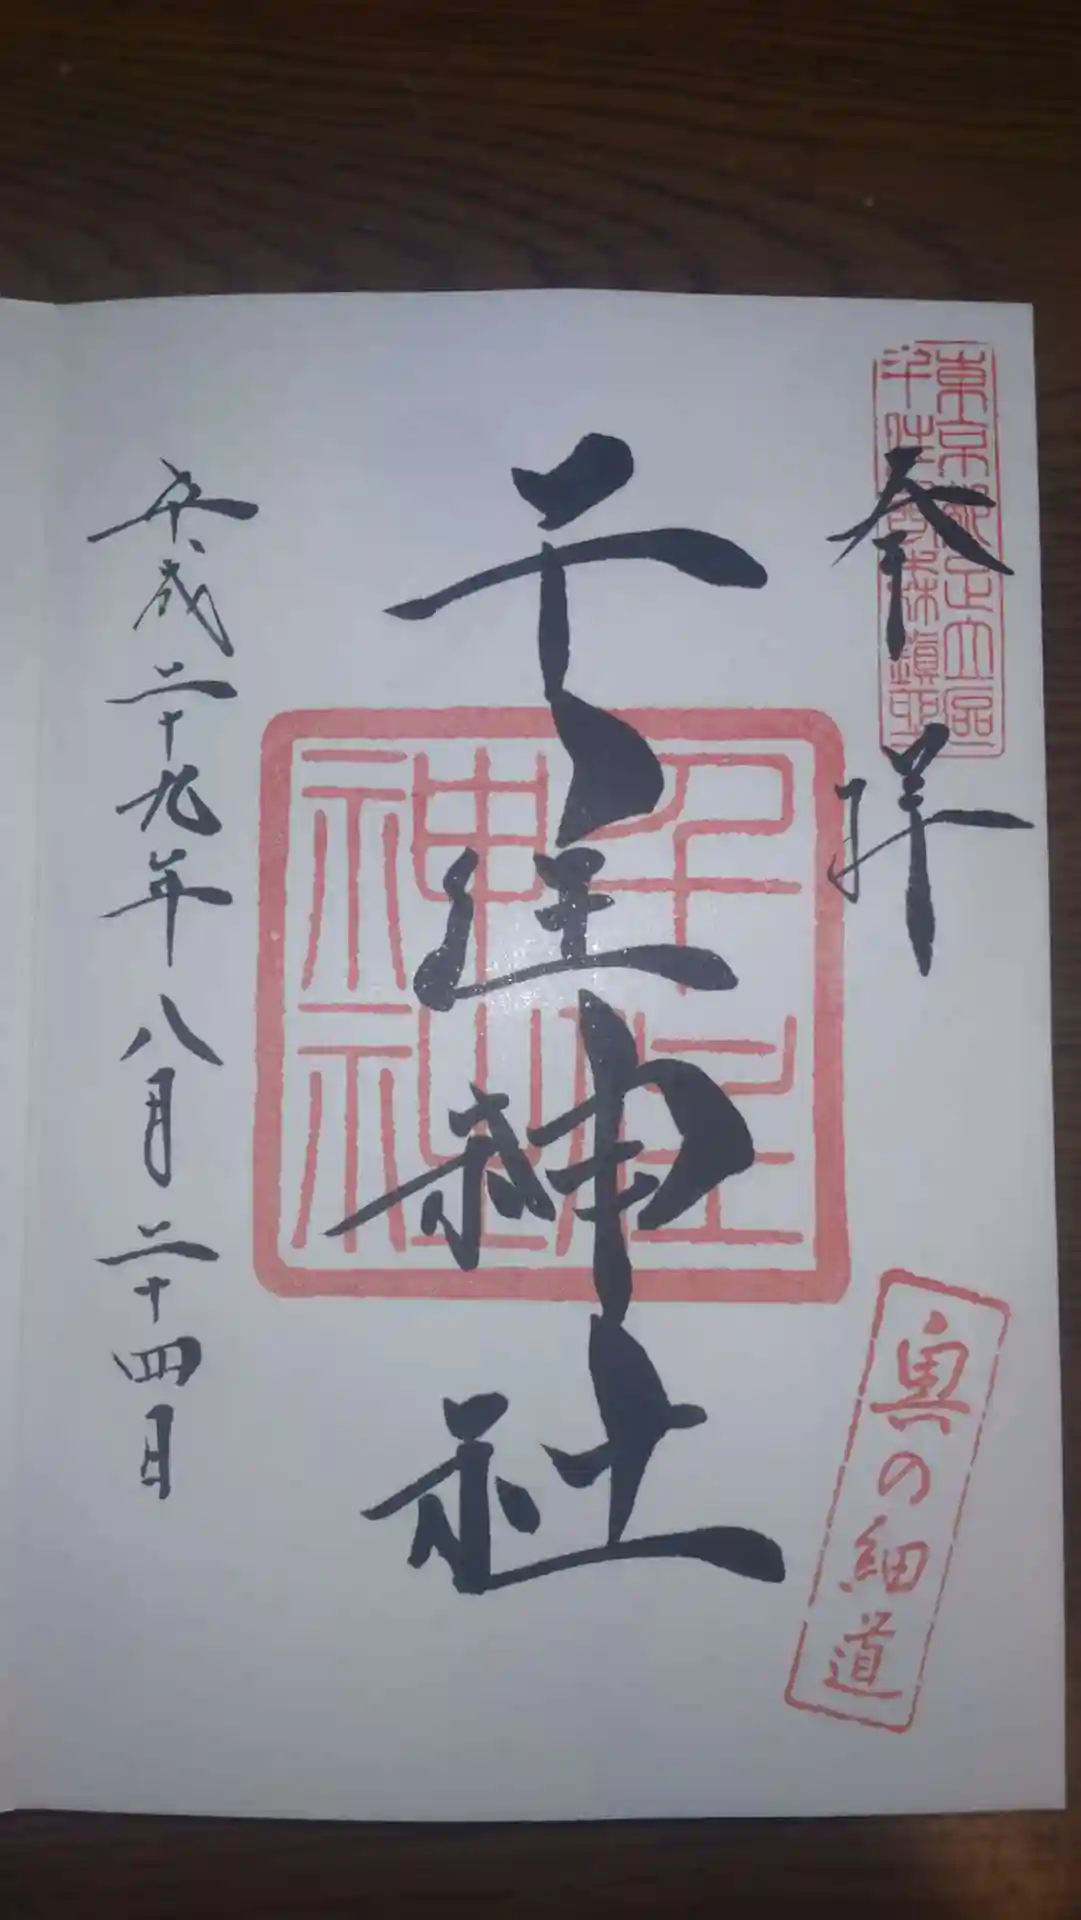 奉拝
東京都足立区
千住
千住神社
千住
神社
平成二十九年八月二十四日
奥の細道